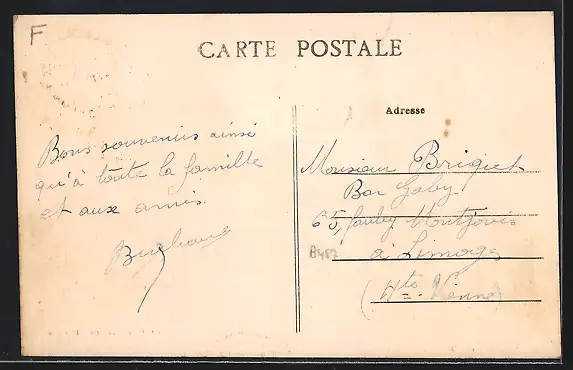 F
CARTE POSTALE
Adresse
Bons souvenirs ainsi
qu'à toute la famille
et aux amis.
Monsieur Briquet
Bar Gaby
65, faubg Montjovis
à Limoges
(Hte. Vienne)